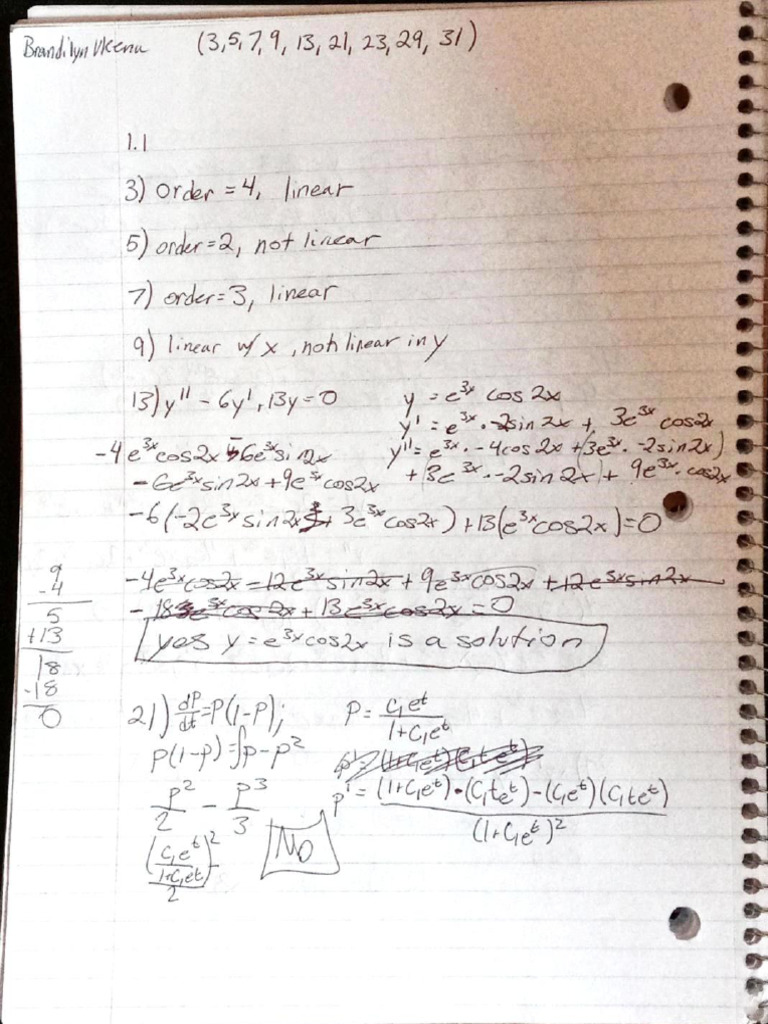 Brandilyn (3,5,7,9, 13, 21, 23, 29, 31)
1.1
3) order = 4, linear
5) order = 2, not linear
7) order = 3, linear
9) linear w/ x, not linear in y
13) y'' - 6y' + 13y = 0
y = e^3x cos 2x
y' = e^3x · -2sin 2x + 3e^3x cos 2x
y'' = e^3x · -4cos 2x + (3e^3x · -2sin 2x)
+ (3e^3x · -2sin 2x) + 9e^3x · cos 2x
-4e^3x cos 2x - 6e^3x sin 2x
- 6e^3x sin 2x + 9e^3x cos 2x
-6(-2e^3x sin 2x + 3e^3x cos 2x) + 13(e^3x cos 2x) = 0
-4e^3x cos 2x - 12e^3x sin 2x + 9e^3x cos 2x + 12e^3x sin 2x
- 18e^3x cos 2x + 13e^3x cos 2x = 0
9
-4
5
+13
18
-18
0
yes y = e^3x cos 2x is a solution
21) dP/dt = P(1-P);
P = C₁e^t / 1+C₁e^t
P(1-P) = ∫P - P²
P²/2 - P³/3
(C₁e^t / 1+C₁e^t)² / 2
No
P' = (1+C₁e^t)·(C₁te^t) - (C₁e^t)(C₁te^t) / (1+C₁e^t)²